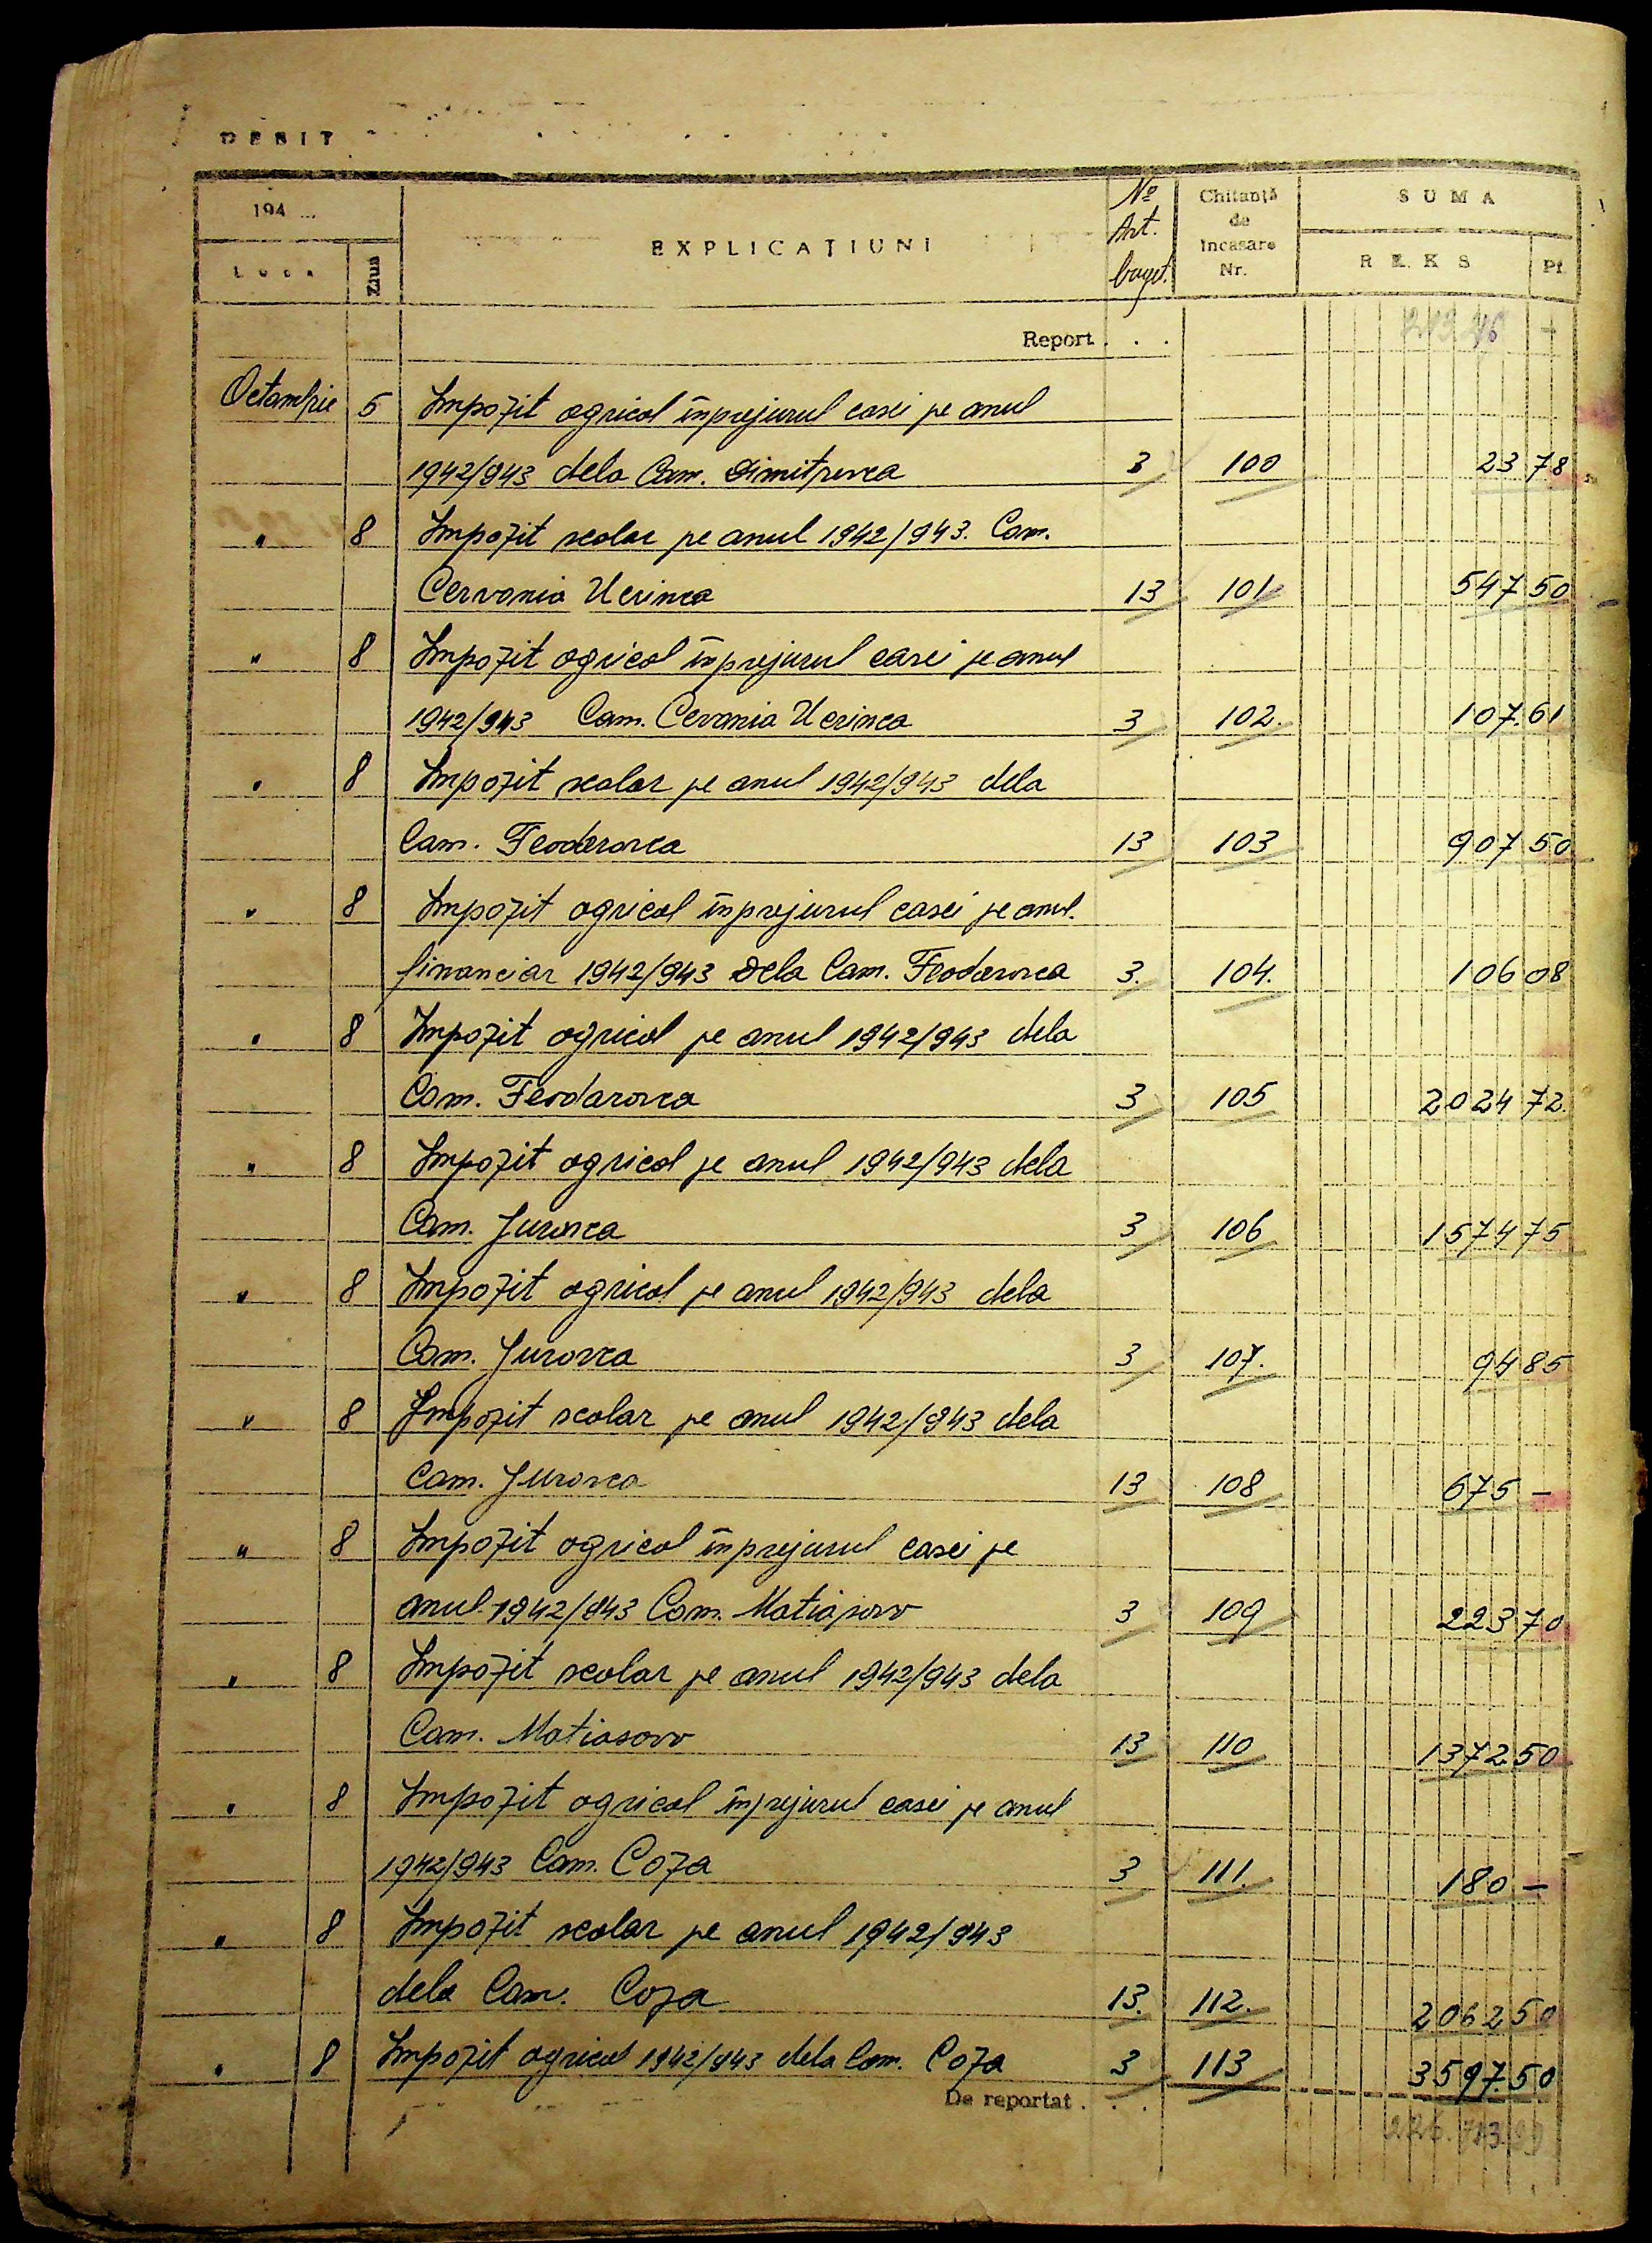 DEBIT
194 ...
Luna
Ziua
EXPLICAȚIUNI
No Art. buget.
Chitanță de încasare Nr.
SUMA
R.E.K.S
Pf.
Report . . . —
Octombrie 5 Impozit agricol înprejurul casei pe anul
1942/943 dela Com. Dimitrovca 3 100 23 78
" 8 Impozit scolar pe anul 1942/943. Com.
Cervonia Ucrinca 13 101 547 50
" 8 Impozit agricol înprejurul casei pe anul
1942/943 Com. Cervonia Ucrinca 3 102. 107.61
" 8 Impozit scolar pe anul 1942/943 dela
Com. Feodorovca 13 103 907 50
" 8 Impozit agricol înprejurul casei pe anul.
financiar 1942/943 Dela Com. Feodorovca 3. 104. 106 08
" 8 Impozit agricol pe anul 1942/943 dela
Com. Feodorovca 3 105 2024 72.
" 8 Impozit agricol pe anul 1942/943 dela
Com. Jurovca 3 106 1574 75
" 8 Impozit agricol pe anul 1942/943 dela
Com. Jurovca 3 107. 94 85
" 8 Impozit scolar pe anul 1942/943 dela
Com. Jurovca 13 108 675 —
" 8 Impozit agricol înprejurul casei pe
anul 1942/943 Com. Matiasovo 3 109 223 70
" 8 Impozit scolar pe anul 1942/943 dela
Com. Matiasovo 13 110 1372 50
" 8 Impozit agricol înprejurul casei pe anul
1942/943 Com. Coza 3 111. 180 —
" 8 Impozit scolar pe anul 1942/943
dela Com. Coza 13. 112. 2062 50
" 8 Impozit agricol 1942/943 dela Com. Coza 3 113 3597.50
De reportat . . .